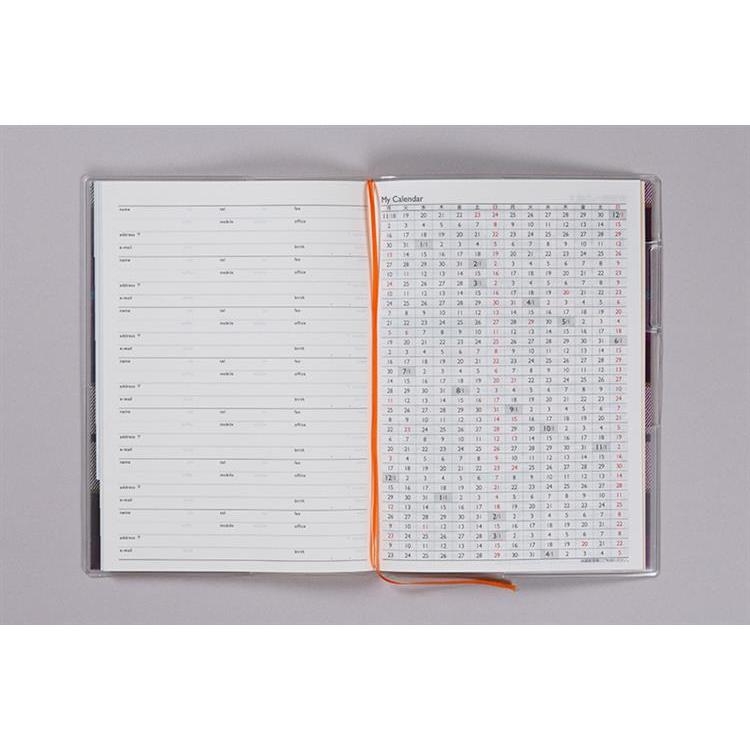 name tel fax
mobile office
address 〒
e-mail birth
name tel fax
mobile office
address 〒
e-mail birth
name tel fax
mobile office
address 〒
e-mail birth
name tel fax
mobile office
address 〒
e-mail birth
name tel fax
mobile office
address 〒
e-mail birth
name tel fax
mobile office
address 〒
e-mail birth
name tel fax
mobile office
address 〒
e-mail birth
My Calendar
月 火 水 木 金 土 日 月 火 水 木 金 土 日
11/18 19 20 21 22 23 24 25 26 27 28 29 30 12/1
2 3 4 5 6 7 8 9 10 11 12 13 14 15
16 17 18 19 20 21 22 23 24 25 26 27 28 29
30 31 1/1 2 3 4 5 6 7 8 9 10 11 12
13 14 15 16 17 18 19 20 21 22 23 24 25 26
27 28 29 30 31 2/1 2 3 4 5 6 7 8 9
10 11 12 13 14 15 16 17 18 19 20 21 22 23
24 25 26 27 28 3/1 2 3 4 5 6 7 8 9
10 11 12 13 14 15 16 17 18 19 20 21 22 23
24 25 26 27 28 29 30 31 4/1 2 3 4 5 6
7 8 9 10 11 12 13 14 15 16 17 18 19 20
21 22 23 24 25 26 27 28 29 30 5/1 2 3 4
5 6 7 8 9 10 11 12 13 14 15 16 17 18
19 20 21 22 23 24 25 26 27 28 29 30 31 6/1
2 3 4 5 6 7 8 9 10 11 12 13 14 15
16 17 18 19 20 21 22 23 24 25 26 27 28 29
30 7/1 2 3 4 5 6 7 8 9 10 11 12 13
14 15 16 17 18 19 20 21 22 23 24 25 26 27
28 29 30 31 8/1 2 3 4 5 6 7 8 9 10
11 12 13 14 15 16 17 18 19 20 21 22 23 24
25 26 27 28 29 30 31 9/1 2 3 4 5 6 7
8 9 10 11 12 13 14 15 16 17 18 19 20 21
22 23 24 25 26 27 28 29 30 10/1 2 3 4 5
6 7 8 9 10 11 12 13 14 15 16 17 18 19
20 21 22 23 24 25 26 27 28 29 30 31 11/1 2
3 4 5 6 7 8 9 10 11 12 13 14 15 16
17 18 19 20 21 22 23 24 25 26 27 28 29 30
12/1 2 3 4 5 6 7 8 9 10 11 12 13 14
15 16 17 18 19 20 21 22 23 24 25 26 27 28
29 30 31 1/1 2 3 4 5 6 7 8 9 10 11
12 13 14 15 16 17 18 19 20 21 22 23 24 25
26 27 28 29 30 31 2/1 2 3 4 5 6 7 8
9 10 11 12 13 14 15 16 17 18 19 20 21 22
23 24 25 26 27 28 3/1 2 3 4 5 6 7 8
9 10 11 12 13 14 15 16 17 18 19 20 21 22
23 24 25 26 27 28 29 30 31 4/1 2 3 4 5